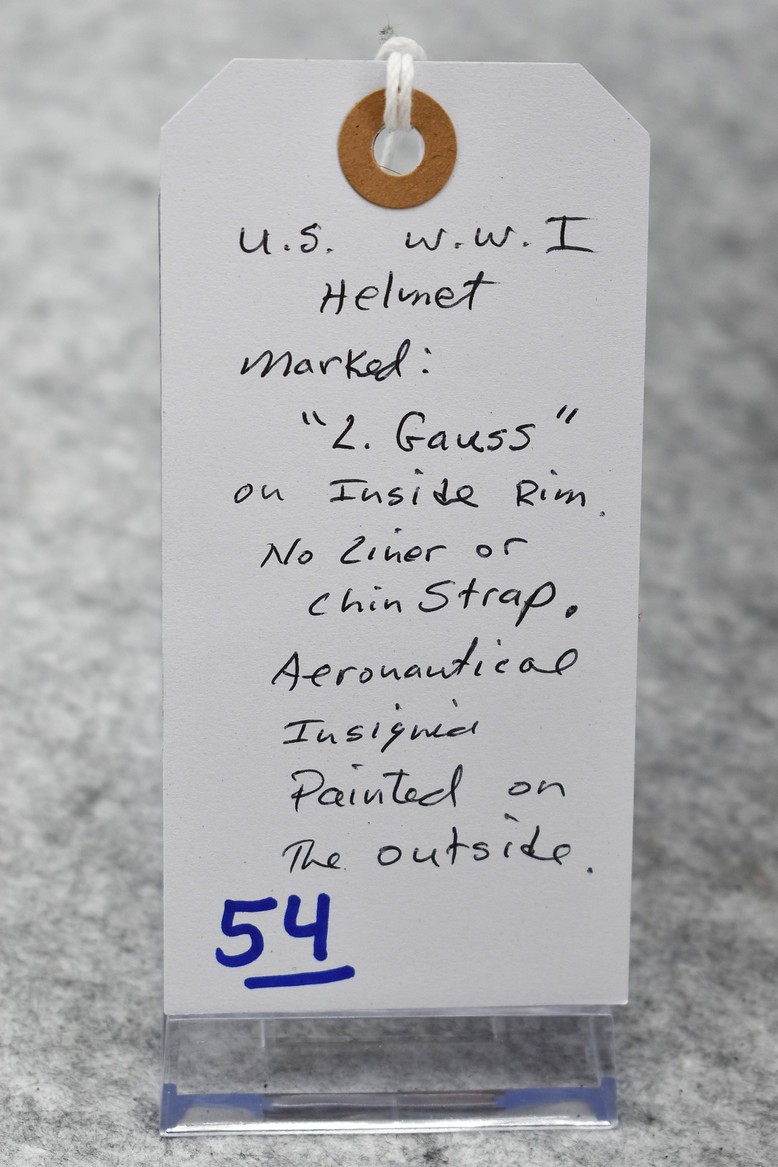 U.S. W.W.I
Helmet
Marked:
"L. Gauss"
on Inside Rim.
No Liner or
Chin Strap.
Aeronautical
Insignia
Painted on
The outside.
54